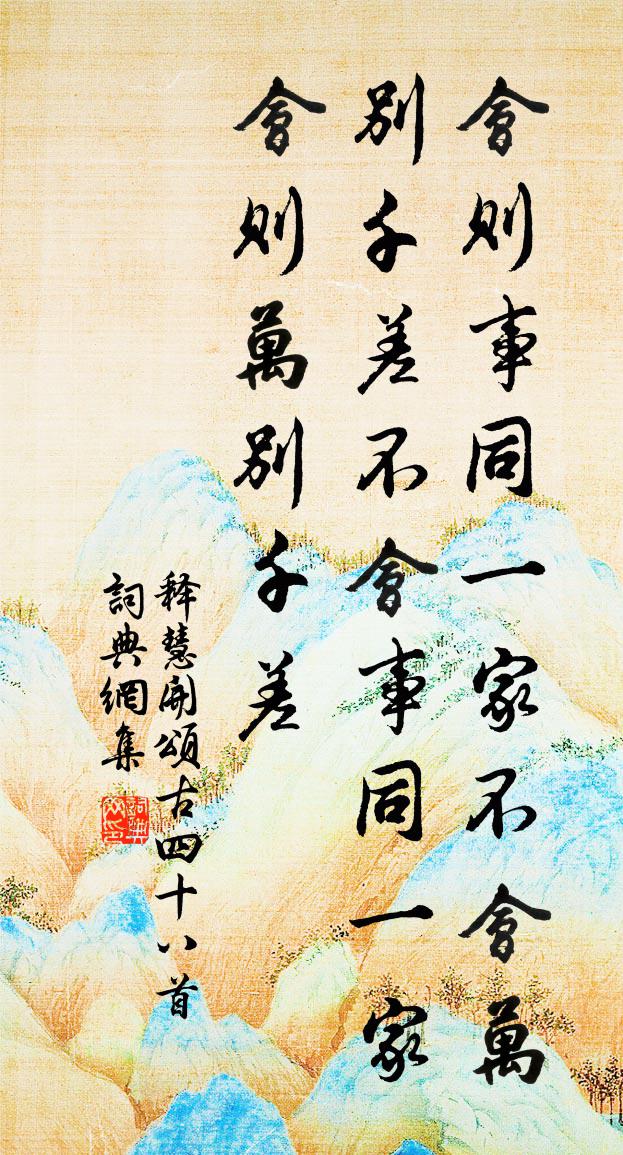 會則事同一家不會萬
別千差不會事同一家
會則萬別千差
释慧開頌古四十八首
詞典網集